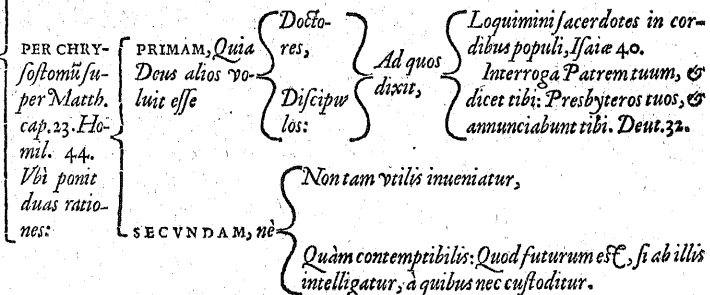 PER CHRY-
ſoſtomũ ſu-
per Matth.
cap.23. Ho-
mil. 44.
Vbi ponit
duas ratio-
nes:
PRIMAM, Quia
Deus alios vo-
luit eſſe
Docto-
res,
Diſcipu-
los:
Ad quos
dixit,
Loquimini ſacerdotes in cor-
dibus populi, Iſaiæ 40.
Interroga Patrem tuum, &
dicet tibi: Presbyteros tuos, &
annunciabunt tibi. Deut.32.
SECVNDAM, nè
Non tam vtilis inueniatur,
Quàm contemptibilis: Quod futurum eſt, ſi ab illis
intelligatur, à quibus nec cuſtoditur.